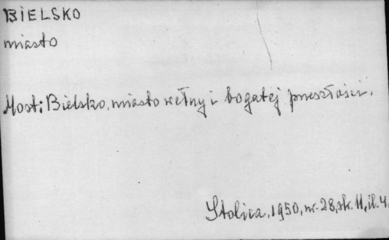 BIELSKO
miasto
Most: Bielsko, miasto wełny i bogatej przeszłości.
Stolica, 1950, nr. 28, sk. 11, il. 4.